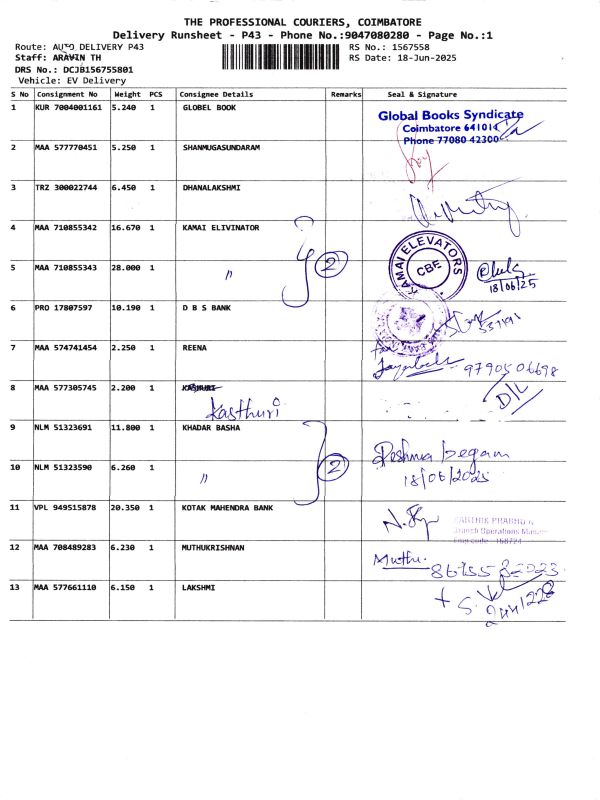 THE PROFESSIONAL COURIERS, COIMBATORE
Delivery Runsheet - P43 - Phone No.:9047080280 - Page No.:1
Route: AUTO DELIVERY P43 RS No.: 1567558
Staff: ARAVIN TH RS Date: 18-Jun-2025
DRS No.: DCJB156755801
Vehicle: EV Delivery
S No Consignment No Weight PCS Consignee Details Remarks Seal & Signature
1 KUR 7004001161 5.240 1 GLOBEL BOOK
Global Books Syndicate
Coimbatore 641014
Phone 77080 42300
2 MAA 577770451 5.250 1 SHANMUGASUNDARAM
3 TRZ 300022744 6.450 1 DHANALAKSHMI
4 MAA 710855342 16.670 1 KAMAI ELIVINATOR
KAMAI ELEVATORS
CBE
5 MAA 710855343 28.000 1 〃 2
18/06/25
6 PRO 17807597 10.190 1 D B S BANK
7 MAA 574741454 2.250 1 REENA
9790506698
8 MAA 577305745 2.200 1
Kasthuri D/L
9 NLM 51323691 11.800 1 KHADAR BASHA
Reshma begam
10 NLM 51323590 6.260 1 〃 2
18/06/2025
11 VPL 949515878 20.350 1 KOTAK MAHENDRA BANK
KARTHIK PRABHU
Branch Operations
Emp code
12 MAA 708489283 6.230 1 MUTHUKRISHNAN
Muthu.
13 MAA 577661110 6.150 1 LAKSHMI